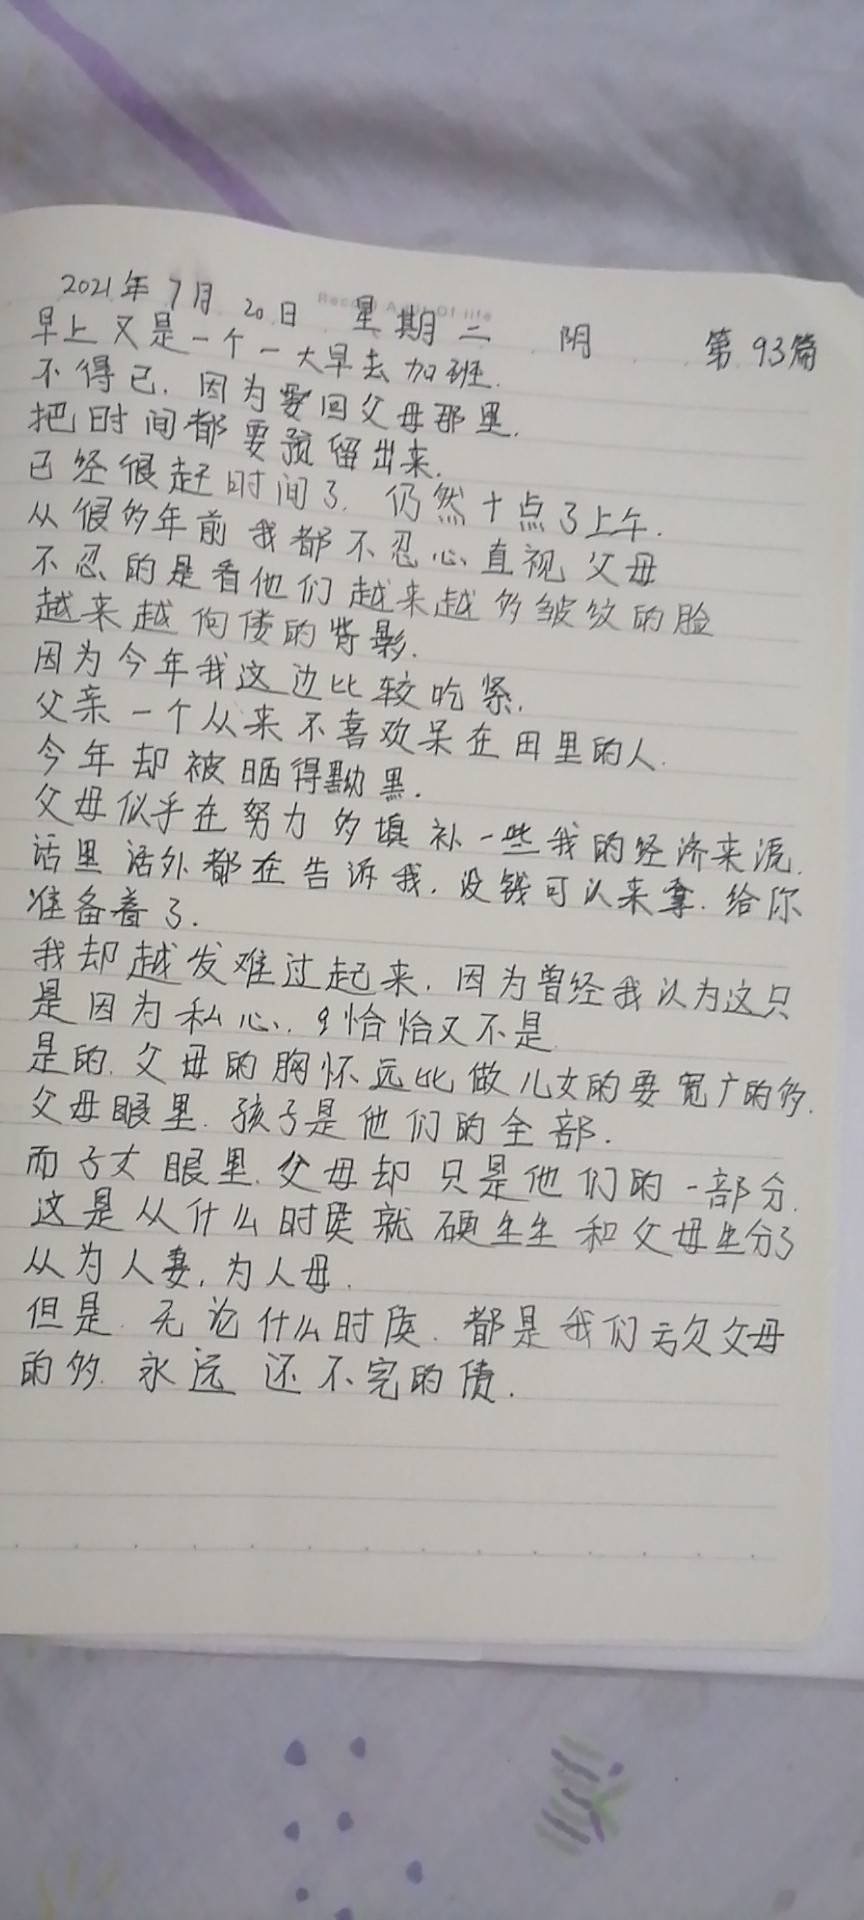 2021年7月20日 星期二 阴 第93篇
早上又是一个一大早去加班.
不得已.因为要回父母那里.
把时间都要预留出来.
已经很赶时间了.仍然十点了上午.
从很多年前我都不忍心直视父母
不忍的是看他们越来越多皱纹的脸
越来越佝偻的背影.
因为今年我这边比较吃紧.
父亲一个从来不喜欢呆在田里的人.
今年却被晒得黝黑.
父母似乎在努力的填补一些我的经济来源.
话里话外都在告诉我.没钱可以来拿.给你
准备着了.
我却越发难过起来.因为曾经我认为这只
是因为私心.恰恰又不是
是的.父母的胸怀远比做儿女的要宽广的多.
父母眼里.孩子是他们的全部.
而子女眼里.父母却只是他们的一部分.
这是从什么时候就硬生生和父母生分了
从为人妻,为人母.
但是.无论什么时候.都是我们亏欠父母
的多.永远还不完的债.